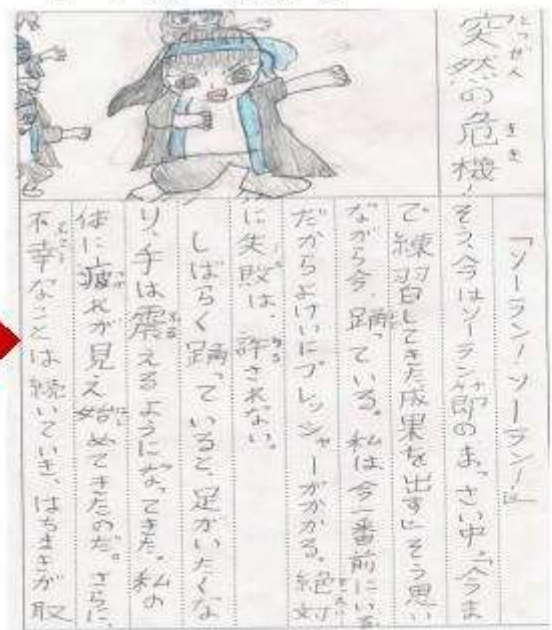 突然の危機！
「ソーラン！ソーラン！」
そう、今はソーラン節のまっさい中。「今ま
で練習してきた成果を出す」そう思い
ながら今、踊っている。私は今一番前にいる。
だからよけいにプレッシャーがかかる。絶対
に失敗は、許されない。
しばらく踊っていると、足がいたくな
り、手は震えるようになってきた。私の
体に疲れが見え始めてきたのだ。さらに、
不幸なことは続いていき、はちまきが取